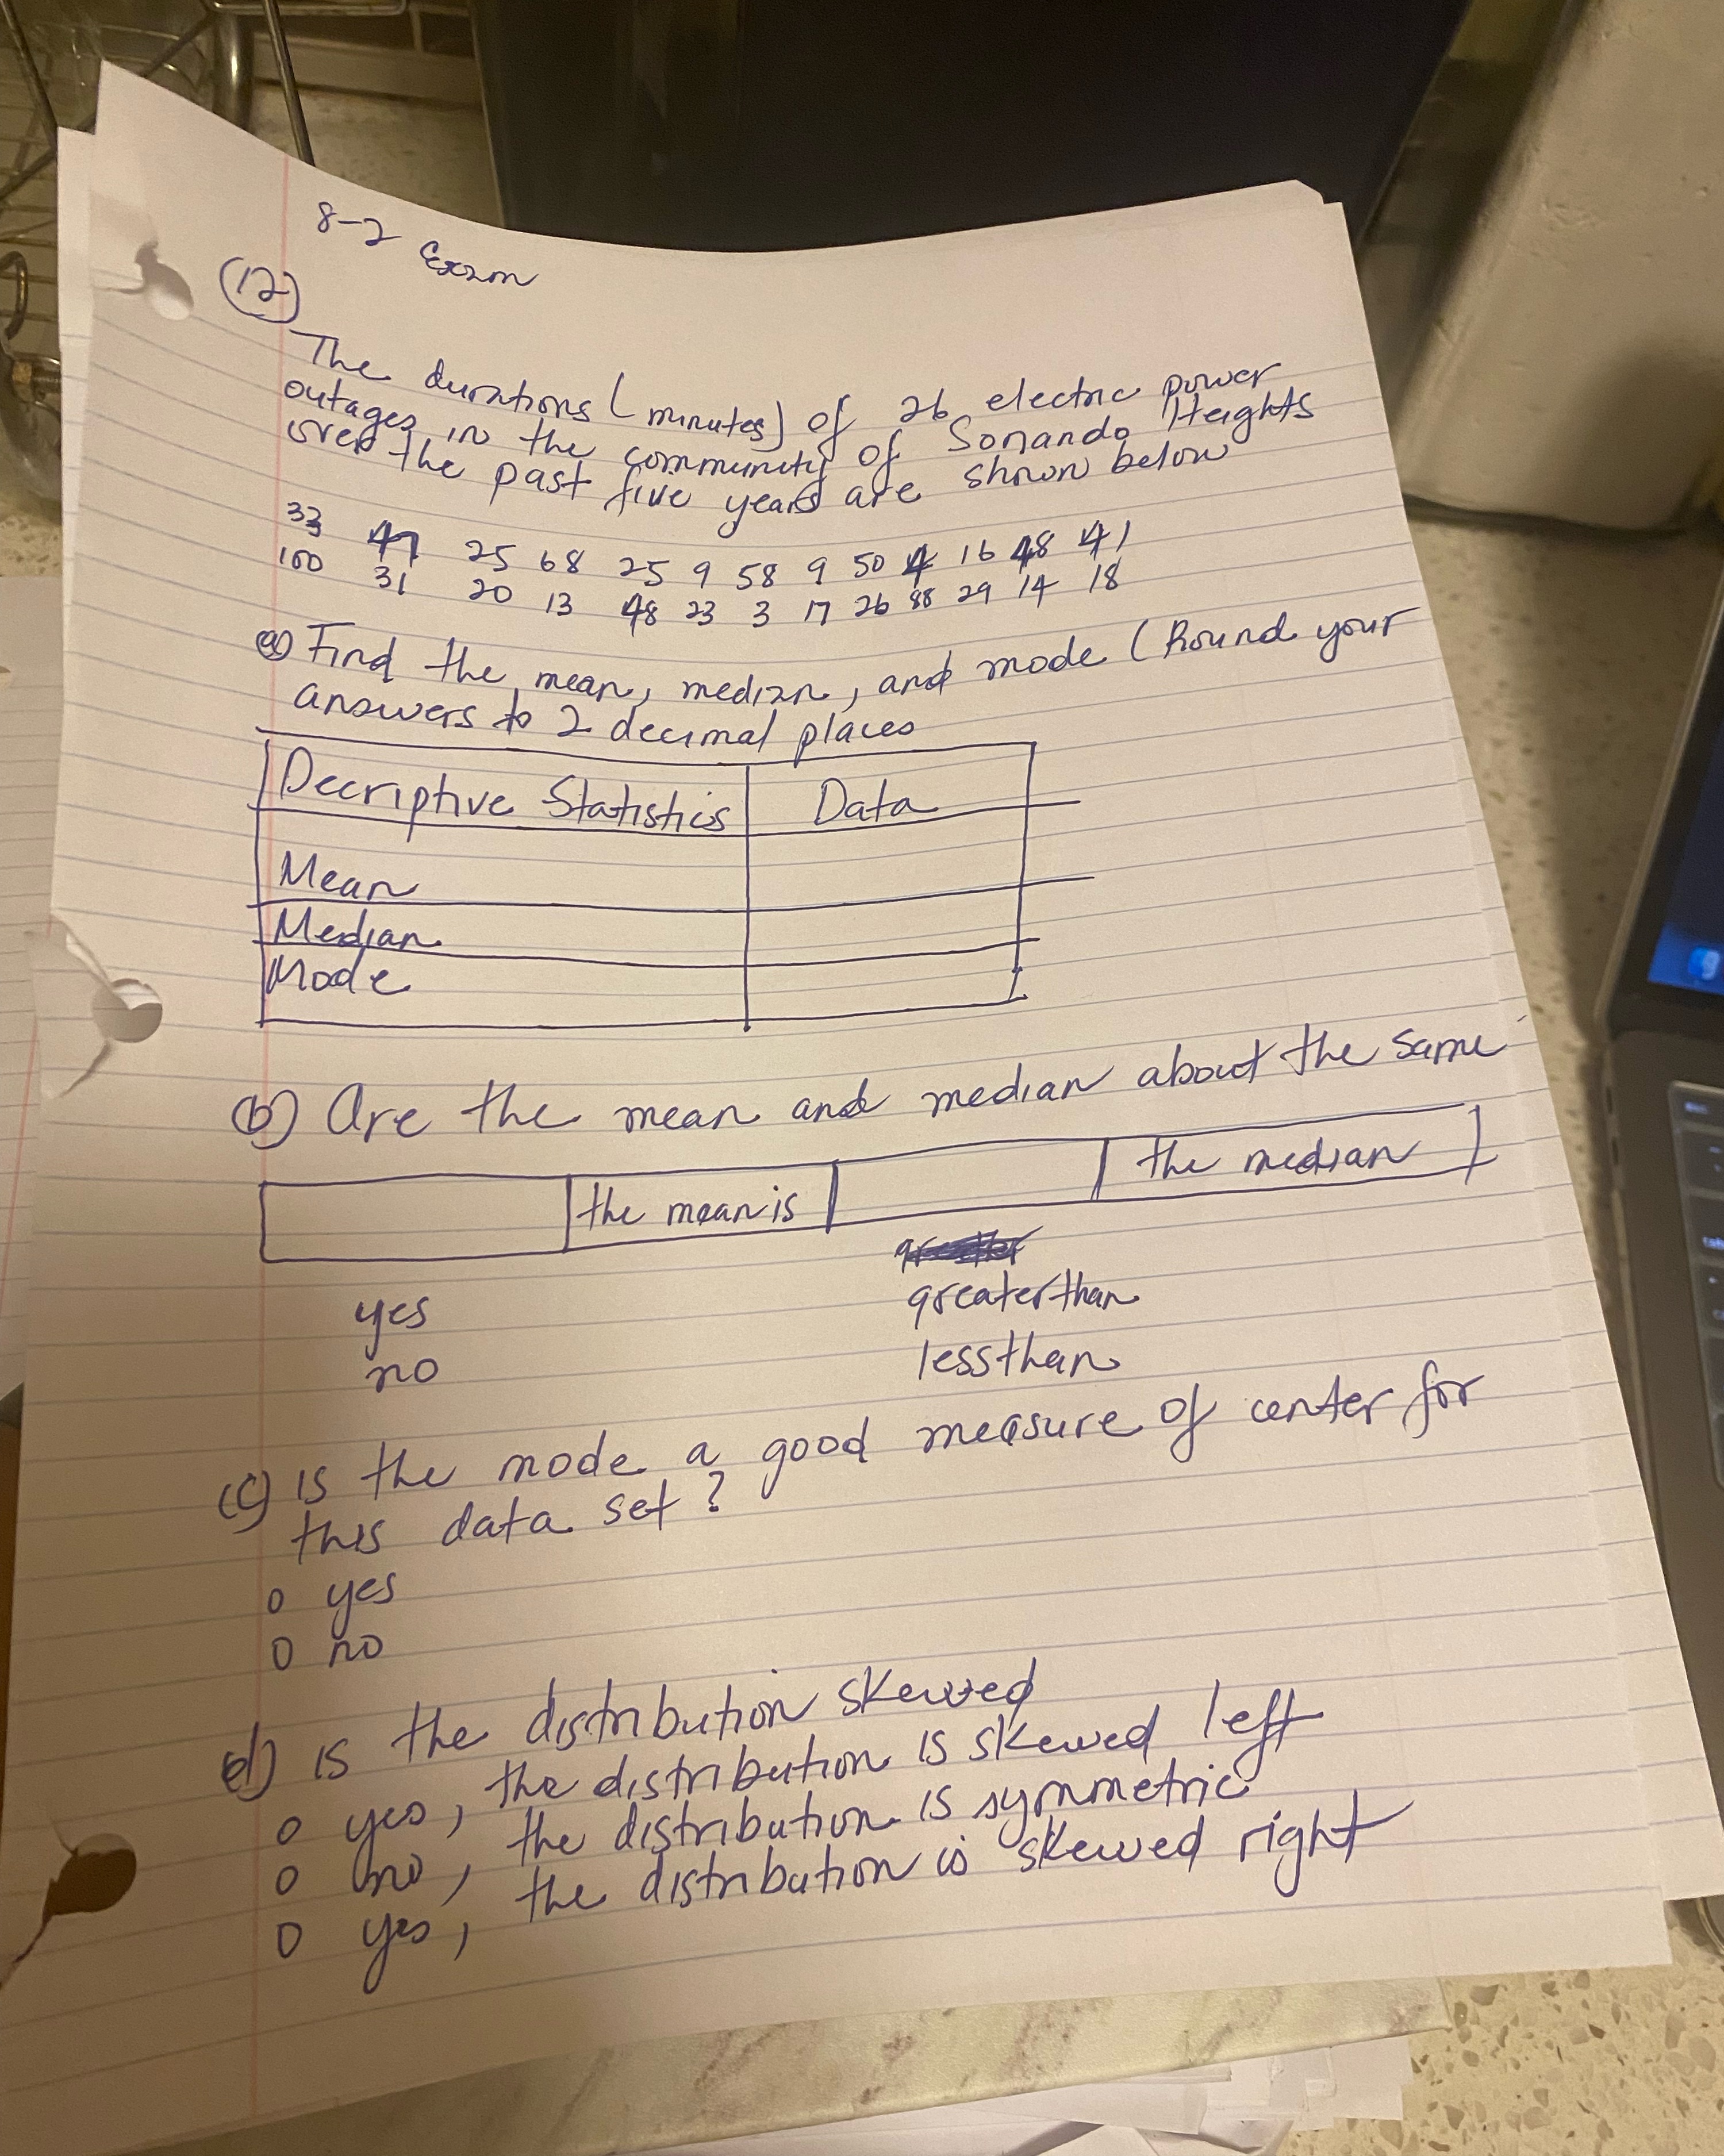 8-2 Exam
(12)
The durations (minutes) of 26 electric power
outages in the community of Sonando Heights
over the past five years are shown below
33 47 25 68 25 9 58 9 50 4 16 48 41
100 31 20 13 48 23 3 17 26 88 29 14 18
a) Find the mean, median, and mode (Round your
answers to 2 decimal places
Decriptive Statistics Data
Mean
Median
Mode
(b) Are the mean and median about the same
the mean is the median
yes greater than
no less than
(c) is the mode a good measure of center for
this data set?
o yes
o no
d) is the distribution skewed
o yes, the distribution is skewed left
o no, the distribution is symmetric
o yes, the distribution is skewed right